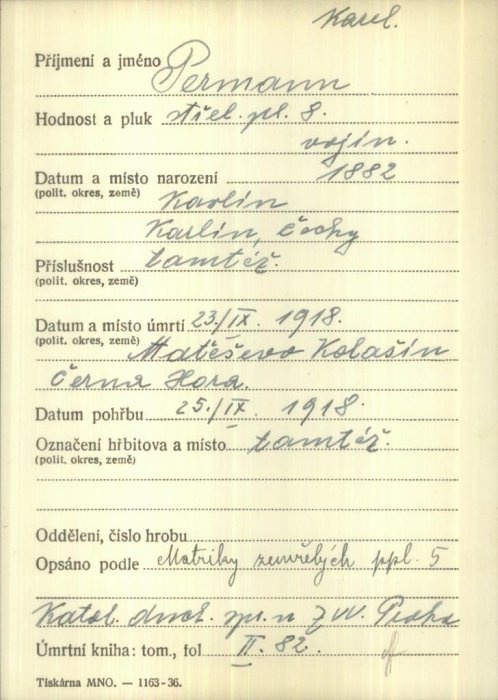 Karel.
Příjmení a jméno Permann
Hodnost a pluk střel. pl. 8.
vojín.
Datum a místo narození 1882
(polit. okres, země) Karlín
Karlín, Čechy
Příslušnost tamtéž.
(polit. okres, země)
Datum a místo úmrtí 23./IX. 1918.
(polit. okres, země) Matěševo Kolašin
Černá Hora.
Datum pohřbu 25./IX. 1918.
Označení hřbitova a místo tamtéž.
(polit. okres, země)
Oddělení, číslo hrobu
Opsáno podle Matriky zemřelých ppl. 5
Katol. duch. spr. n Z.VV. Praha
Úmrtní kniha: tom., fol II. 82.
Tiskárna MNO. — 1163-36.